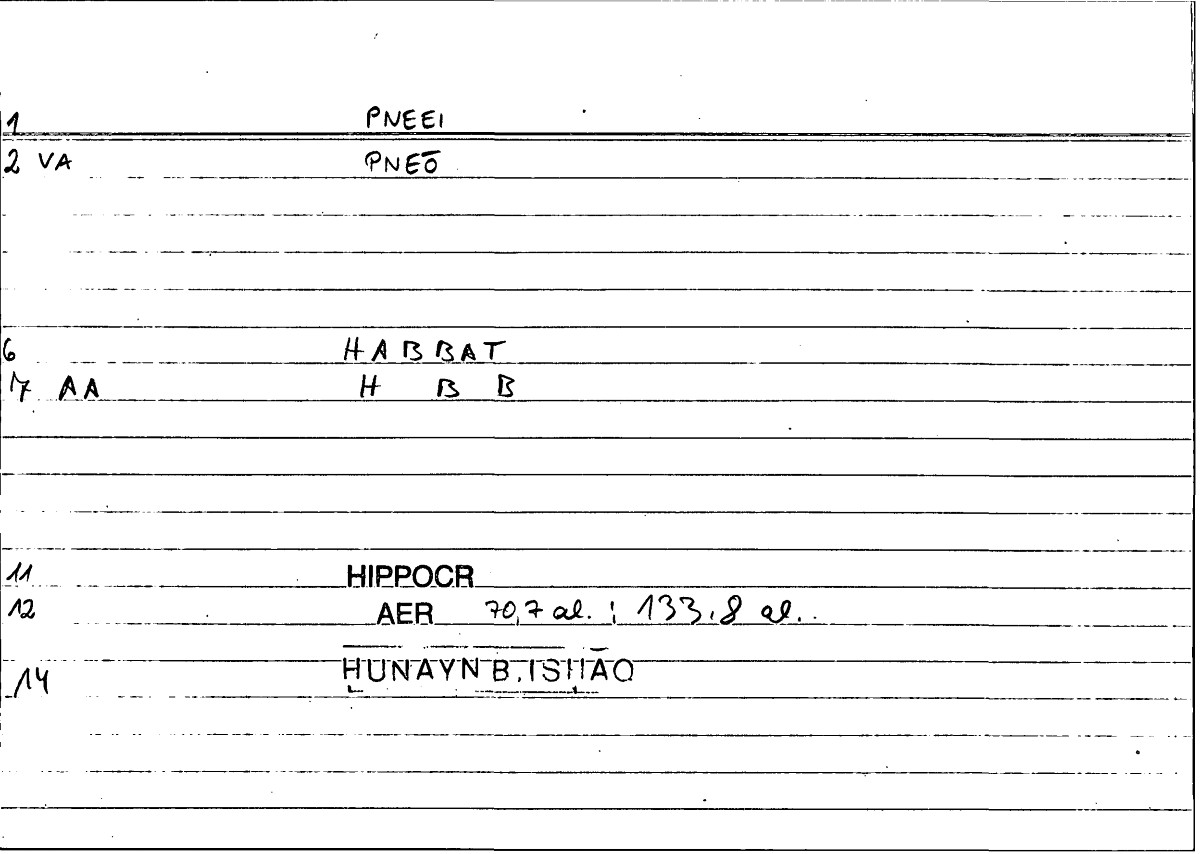 1 PNEEI
2 VA PNEŌ
6 HABBAT
7 AA H B B
11 HIPPOCR
12 AER 70,7 al. ; 133,8 al.
14 HUNAYN B. ISḤĀQ